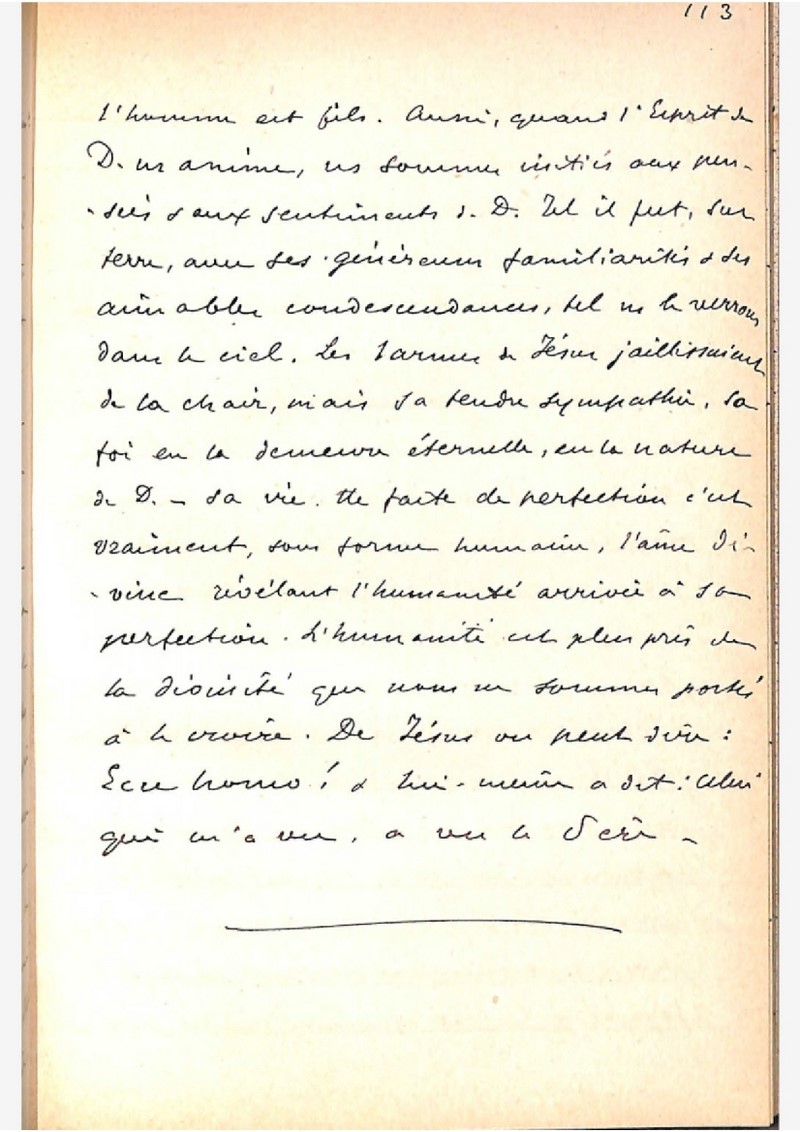 113
l'homme est fils. Aussi, quand l'Esprit de
D. ns anime, ns sommes initiés aux pen-
-sées & aux sentiments d. D. Tel il fut, sur
terre, avec ses généreuses familiarités & ses
aimables condescendances, tel ns le verrons
dans le ciel. Les larmes de Jésus jaillissaient
de la chair, mais sa tendre sympathie, sa
foi en la demeure éternelle, en la nature
de D. – sa vie. faite de perfection c'est
vraiment, sous forme humaine, l'âme di-
-vine révélant l'humanité arrivée à sa
perfection. L'humanité est plus près de
la divinité que nous ne sommes portés
à le croire. De Jésus on peut dire :
Ecce homo ! & lui-même a dit : Celui
qui m'a vu, a vu le Père –